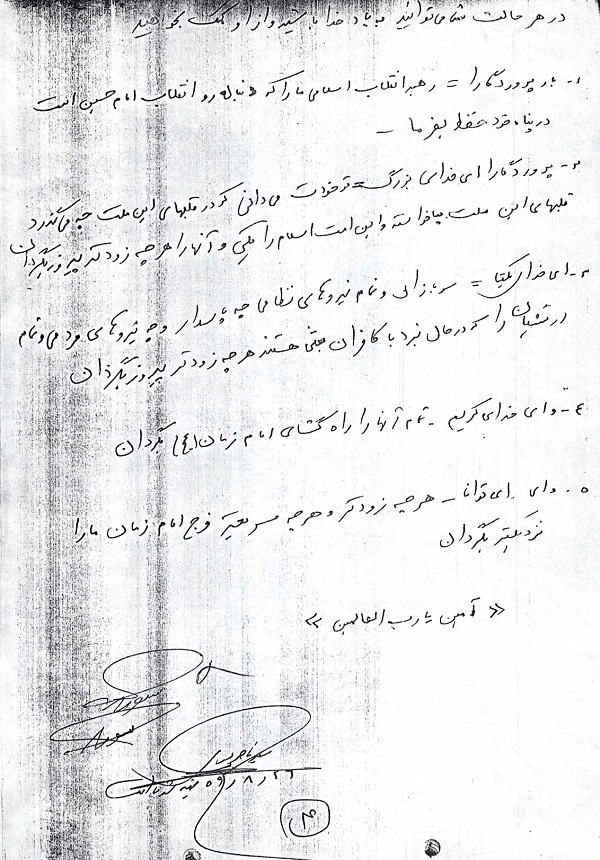 در هر حالت شما می‌توانید به یاد خدا باشید و از او کمک بخواهید
۱- بار پروردگارا = رهبر انقلاب اسلامی ما را که دنباله رو انقلاب امام حسین است
در پناه خود حفظ بفرما -
۲- پروردگارا ای خدای بزرگ = تو خودت می دانی که در قلبهای این ملت چه می‌گذرد
قلبهای این ملت بپاخواسته و این امت اسلام را یکی و آنها را هر چه زودتر پیروز بگردان
۳- ای خدای یکتا = سربازان و تمام نیروهای نظامی چه پاسدار و چه نیروهای مردمی و تمام
ارتشیان را که در حال نبرد با کافران بعثی هستند هر چه زودتر پیروز بگردان
۴- و ای خدای کریم - تمام آنها را راه گشای امام زمان (ع) بگردان
۵- و ای توانا - هر چه زودتر و هر چه سریعتر فرج امام زمان ما را
نزدیکتر بگردان
« آمین یا رب العالمین »
۵۹/۸/۲۶
۴